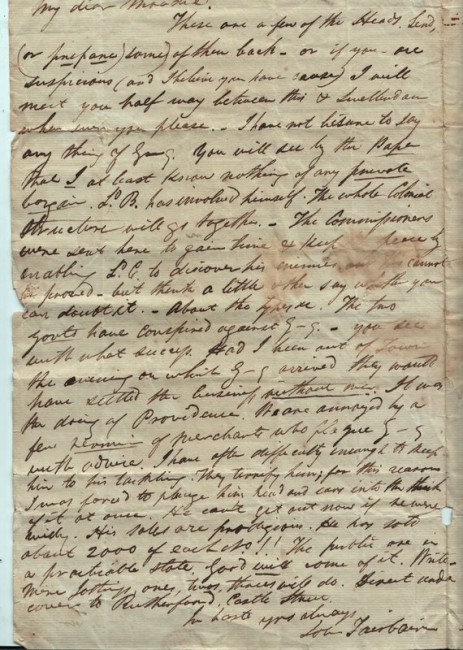 My dear
These are a few of the Heads. Send,
(or prepare) some of them back – or if you are
suspicious (and I believe you have cause) I will
meet you half way between this & Swellendam
when ever you please. – I have not leisure to say
any thing of G–g. You will see by the Paper
that I at least know nothing of any private
bargain. Ld B. has involved himself. The whole Colonial
structure will go together. – The Commissioners
were sent here to gain time & keep peace by
enabling Ld C. to discover his enemies cannot
be proved – but think a little & then say whether you
can doubt it. – About the Press. The two
Govts have conspired against G–g. – you see
with what success. Had I been out of Town
the evening on which G–g arrived they would
have settled the business without me. It was
the doing of Providence. We are annoyed by a
few of merchants who plague G–g
with advice. I have often difficulty enough to keep
him to his tackling. They terrify him; for this reason
I was forced to plunge him head and ears into the thick
of it at once. He can't get out now if he were
His sales are prodigious. He has sold
about 2000 of each No!! The public are in
a practicable state. Good will come of it. Write
more ones, twos, threes will do. Direct under
cover to Rutherfoord, Castle Street.
In haste yrs always,
John Fairbairn